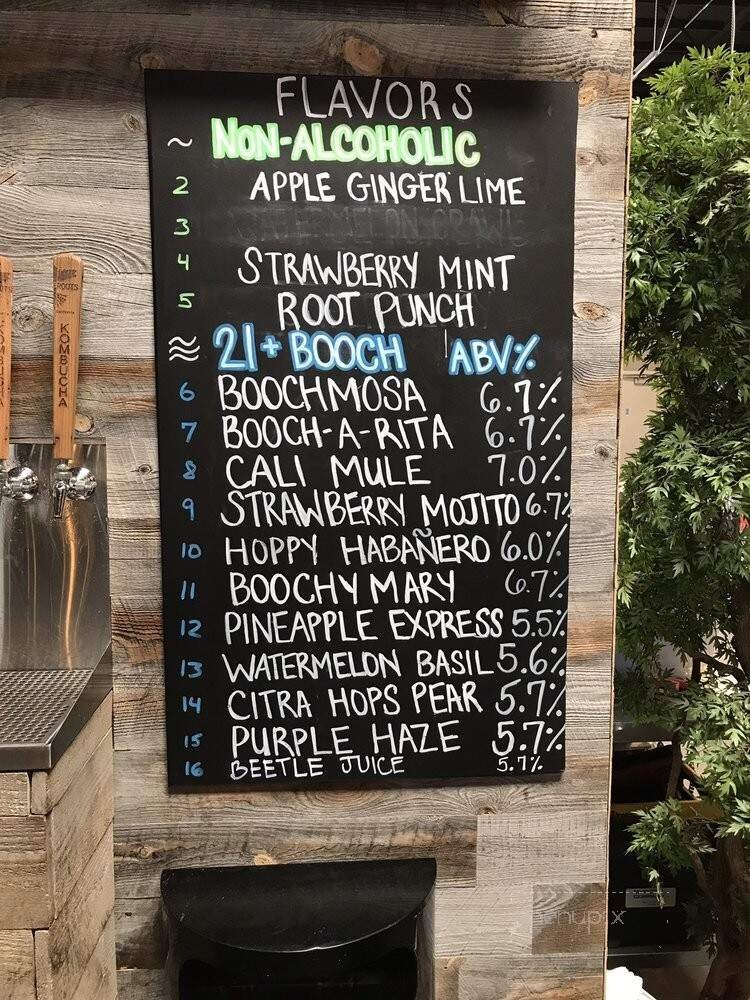 FLAVORS
~ NON-ALCOHOLIC
2 APPLE GINGER LIME
3 WATERMELON CRAWL
4 STRAWBERRY MINT
5 ROOT PUNCH
≈ 21+ BOOCH ABV%
6 BOOCHMOSA 6.7%
7 BOOCH-A-RITA 6.7%
8 CALI MULE 7.0%
9 STRAWBERRY MOJITO 6.7%
10 HOPPY HABAÑERO 6.0%
11 BOOCHY MARY 6.7%
12 PINEAPPLE EXPRESS 5.5%
13 WATERMELON BASIL 5.6%
14 CITRA HOPS PEAR 5.7%
15 PURPLE HAZE 5.7%
16 BEETLE JUICE 5.7%
KOMBUCHA
KOMBUCHA